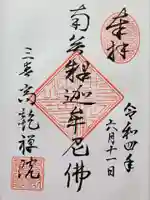 奉拝
令和四年
六月十一日
南無釋迦牟尼佛
三春
高乾禅院